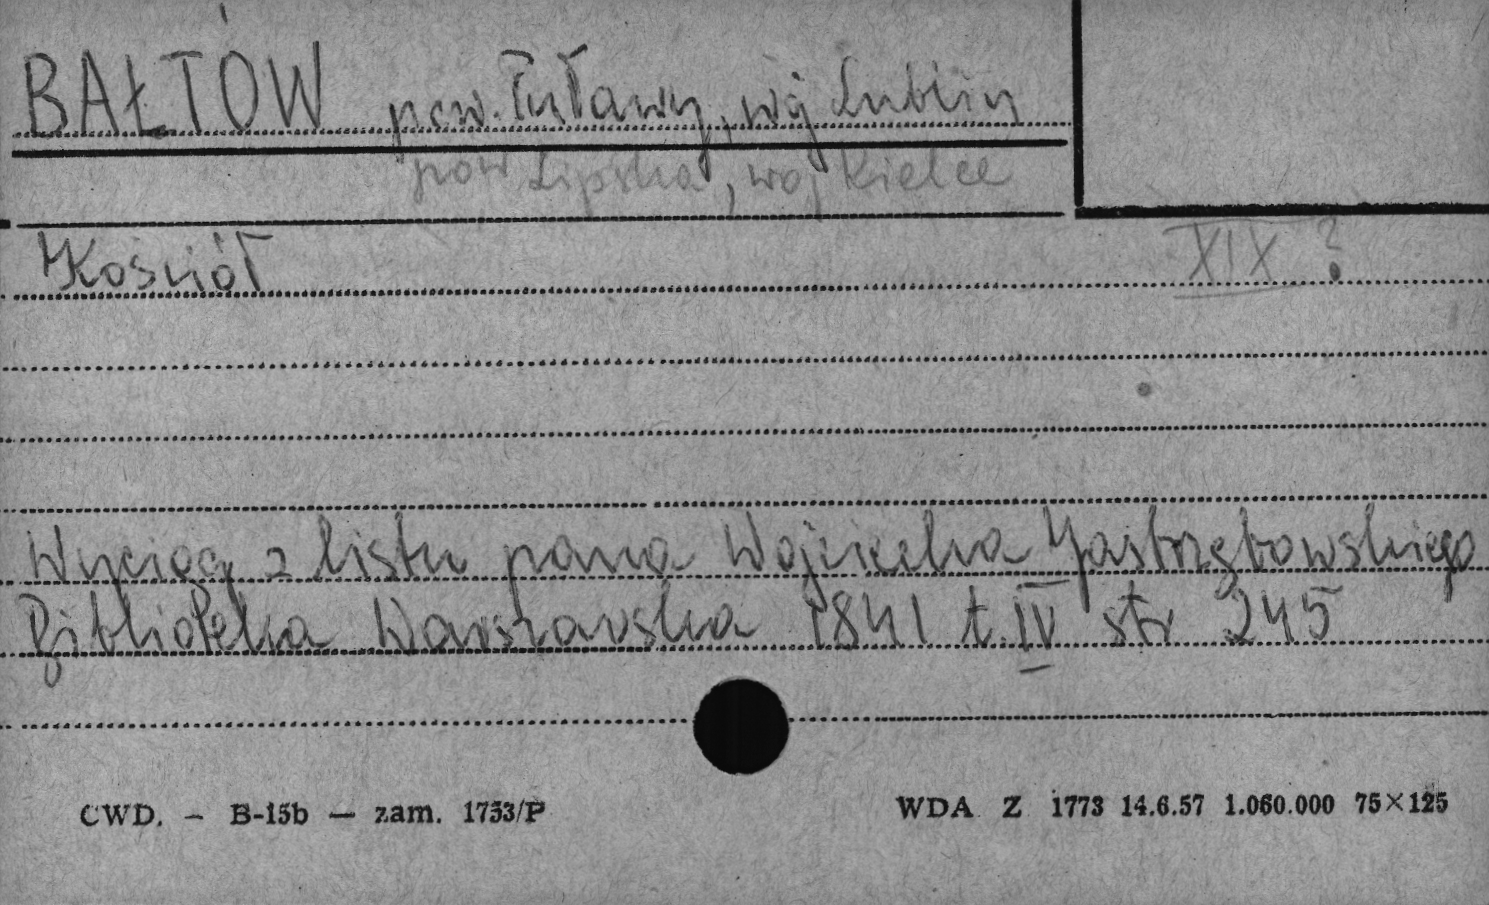 BAŁTÓW pow. Puławy, wj Lublin
pow Lipska, woj Kielce
Kościół XIX ?
Wyciąg z listu pana Wojciecha Jastrzębowskiego
Biblioteka Warszawska 1841 t. IV str 245
CWD. – B-15b — zam. 1753/P WDA Z 1773 14.6.57 1.060.000 75×125